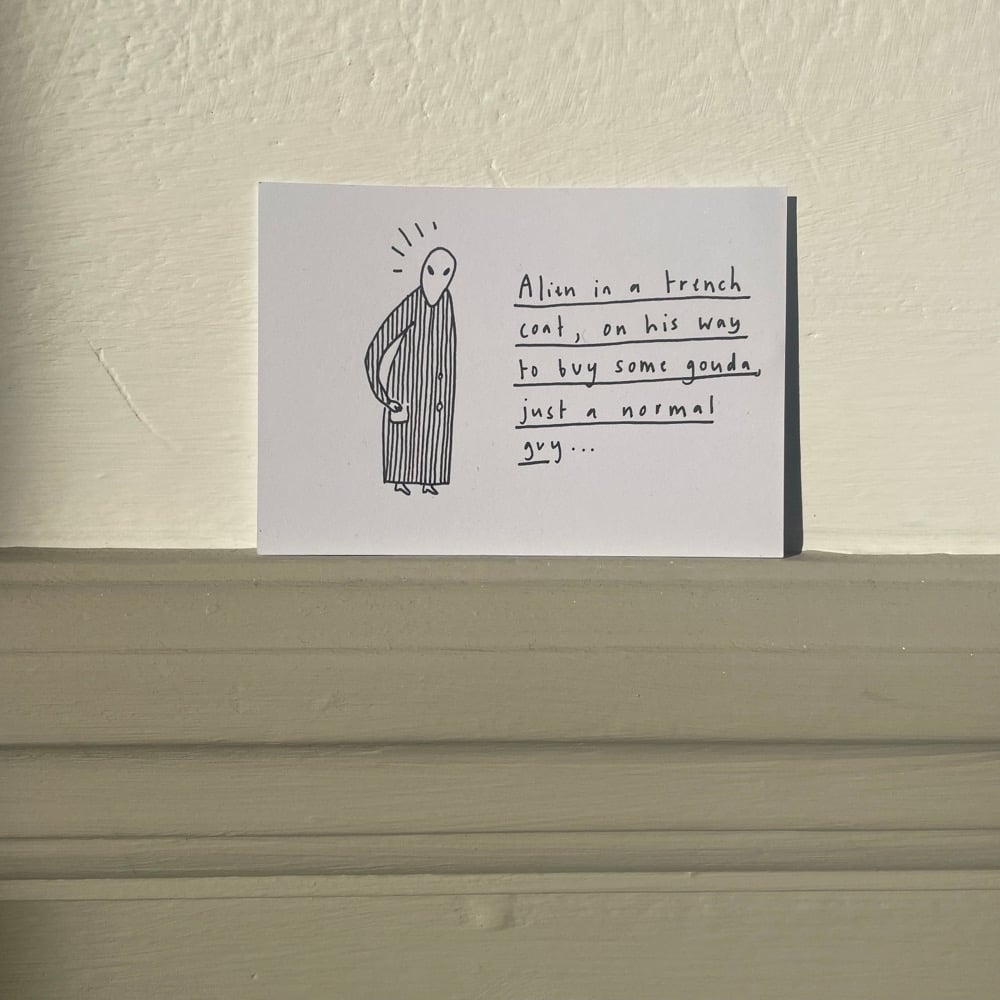 Alien in a trench
coat, on his way
to buy some gouda,
just a normal
guy...